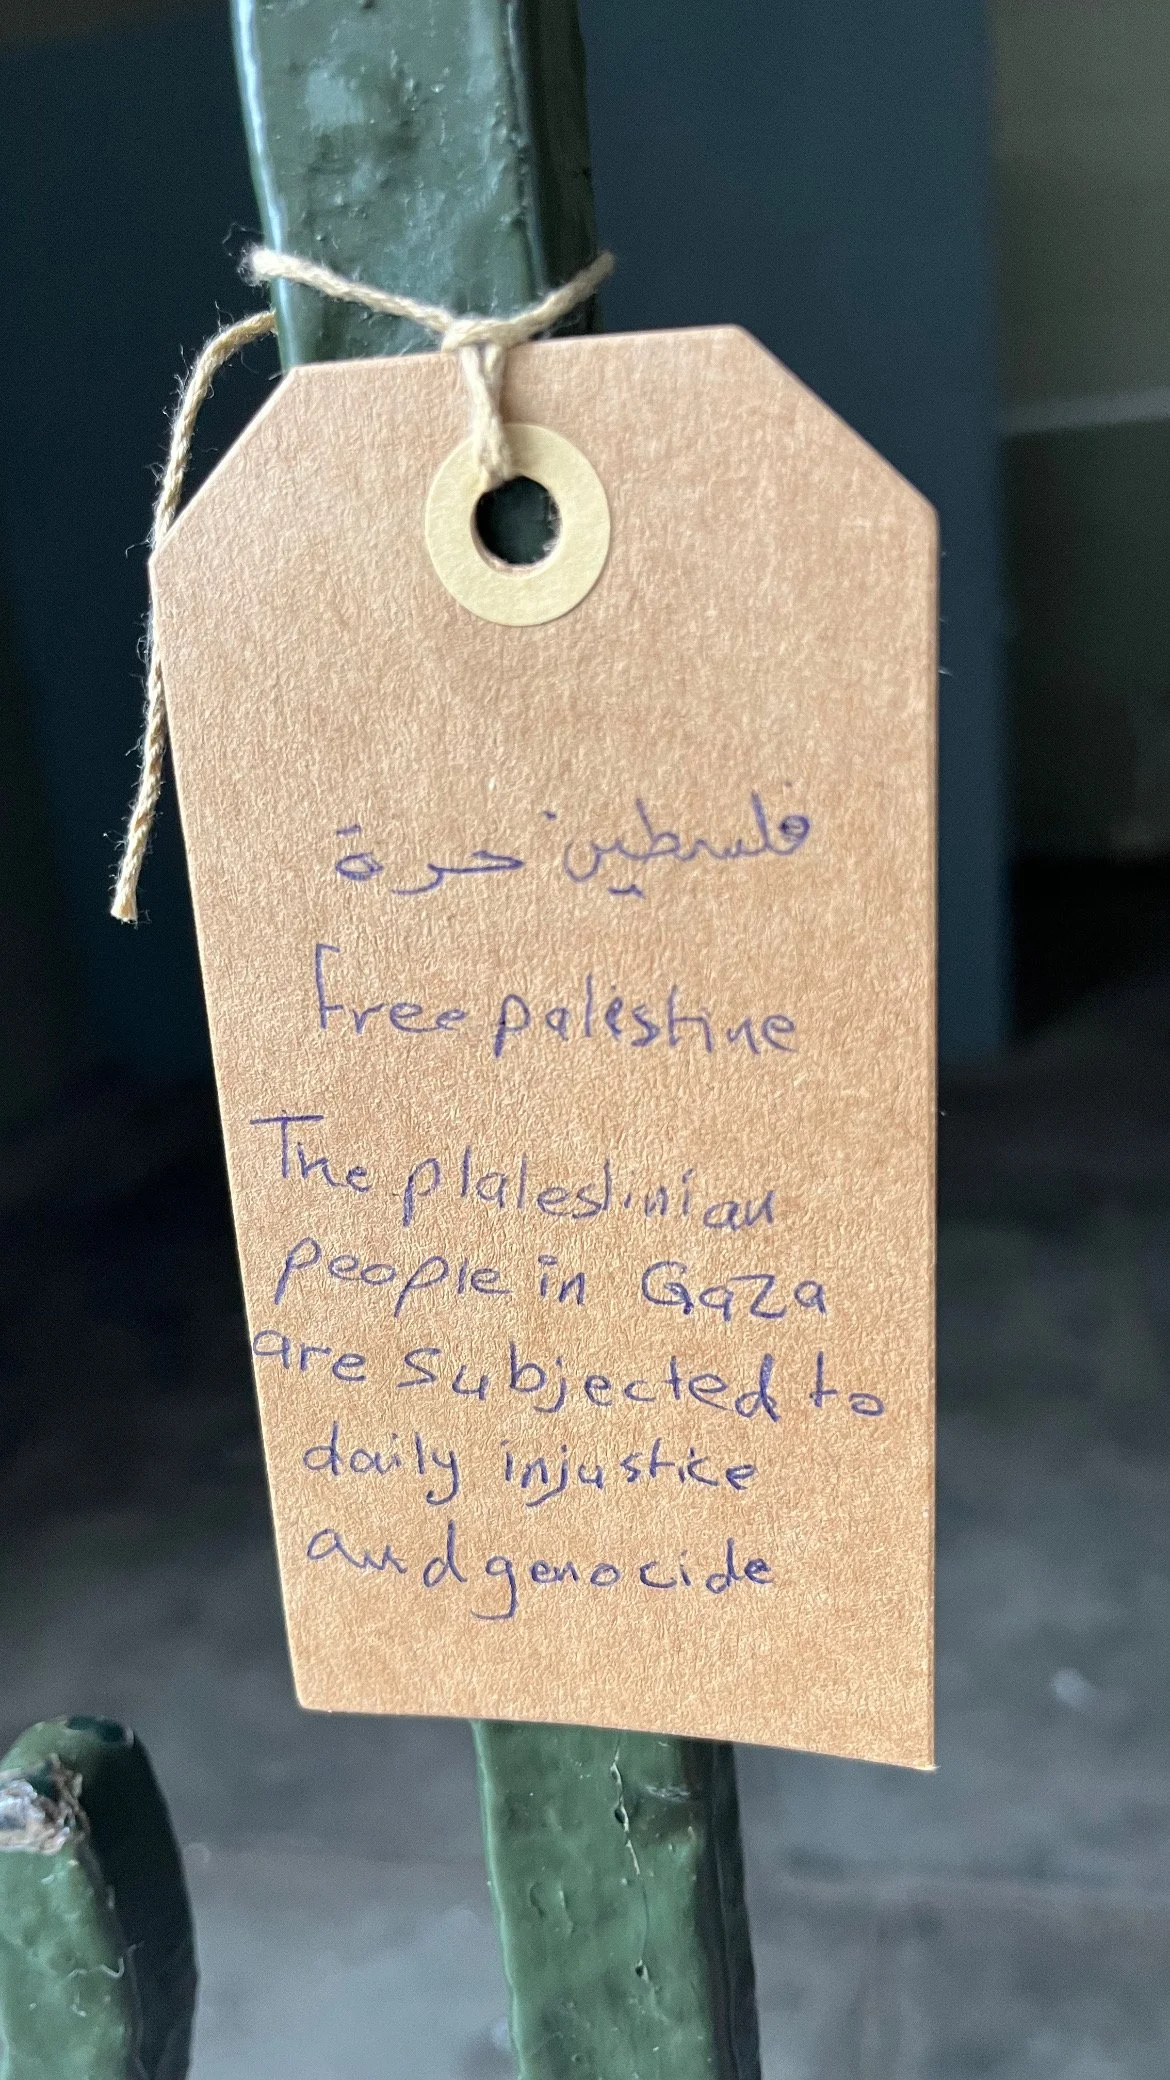 فلسطين حرة
free palestine
The plalestinian
people in Gaza
are subjected to
daily injustice
and genocide